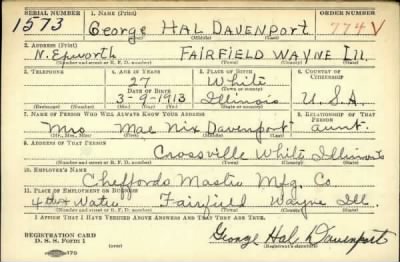 SERIAL NUMBER 1. NAME (Print) ORDER NUMBER
1573 George Hal Davenport 774 V
(First) (Middle) (Last)
2. ADDRESS (Print)
N. Epworth FAIRFIELD WAYNE Ill.
(Number and street or R. F. D. number) (Town) (County) (State)
3. TELEPHONE 4. AGE IN YEARS 5. PLACE OF BIRTH 6. COUNTRY OF CITIZENSHIP
27 White
DATE OF BIRTH (Town or county)
3-8-1913 Illinois U.S.A.
(Exchange) (Number) (Mo.) (Day) (Yr.) (State or country)
7. NAME OF PERSON WHO WILL ALWAYS KNOW YOUR ADDRESS 8. RELATIONSHIP OF THAT PERSON
Mrs Mae Nix Davenport aunt.
(Mr., Mrs., Miss) (First) (Middle) (Last)
9. ADDRESS OF THAT PERSON
Crossville White Illinois
(Number and street or R. F. D. number) (Town) (County) (State)
10. EMPLOYER'S NAME
Cheffords Master Mfg. Co.
11. PLACE OF EMPLOYMENT OR BUSINESS
4th & Fairfield Wayne Ill.
(Number and street or R. F. D. number) (Town) (County) (State)
I AFFIRM THAT I HAVE VERIFIED ABOVE ANSWERS AND THAT THEY ARE TRUE.
REGISTRATION CARD
D. S. S. Form 1 George Hal Davenport
(Registrant's signature)